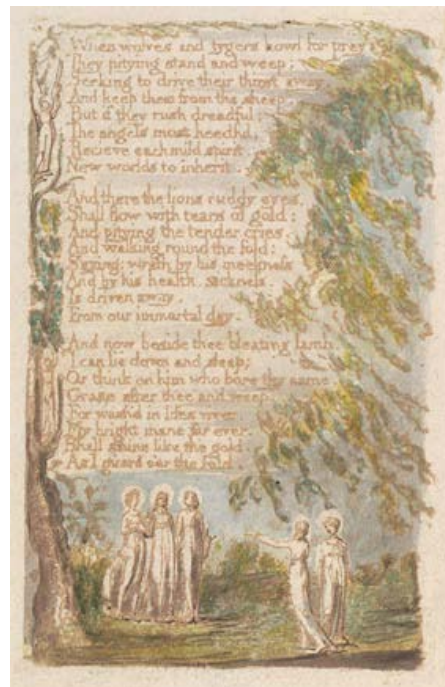 When wolves and tygers howl for prey
They pitying stand and weep;
Seeking to drive their thirst away,
And keep them from the sheep.
But if they rush dreadful;
The angels most heedful,
Recieve each mild spirit,
New worlds to inherit.
And there the lions ruddy eyes,
Shall flow with tears of gold:
And pitying the tender cries,
And walking round the fold:
Saying: wrath by his meekness
And by his health, sickness,
Is driven away,
From our immortal day.
And now beside thee bleating lamb,
I can lie down and sleep;
Or think on him who bore thy name,
Grase after thee and weep.
For wash'd in lifes river,
My bright mane for ever,
Shall shine like the gold,
As I guard o'er the fold.